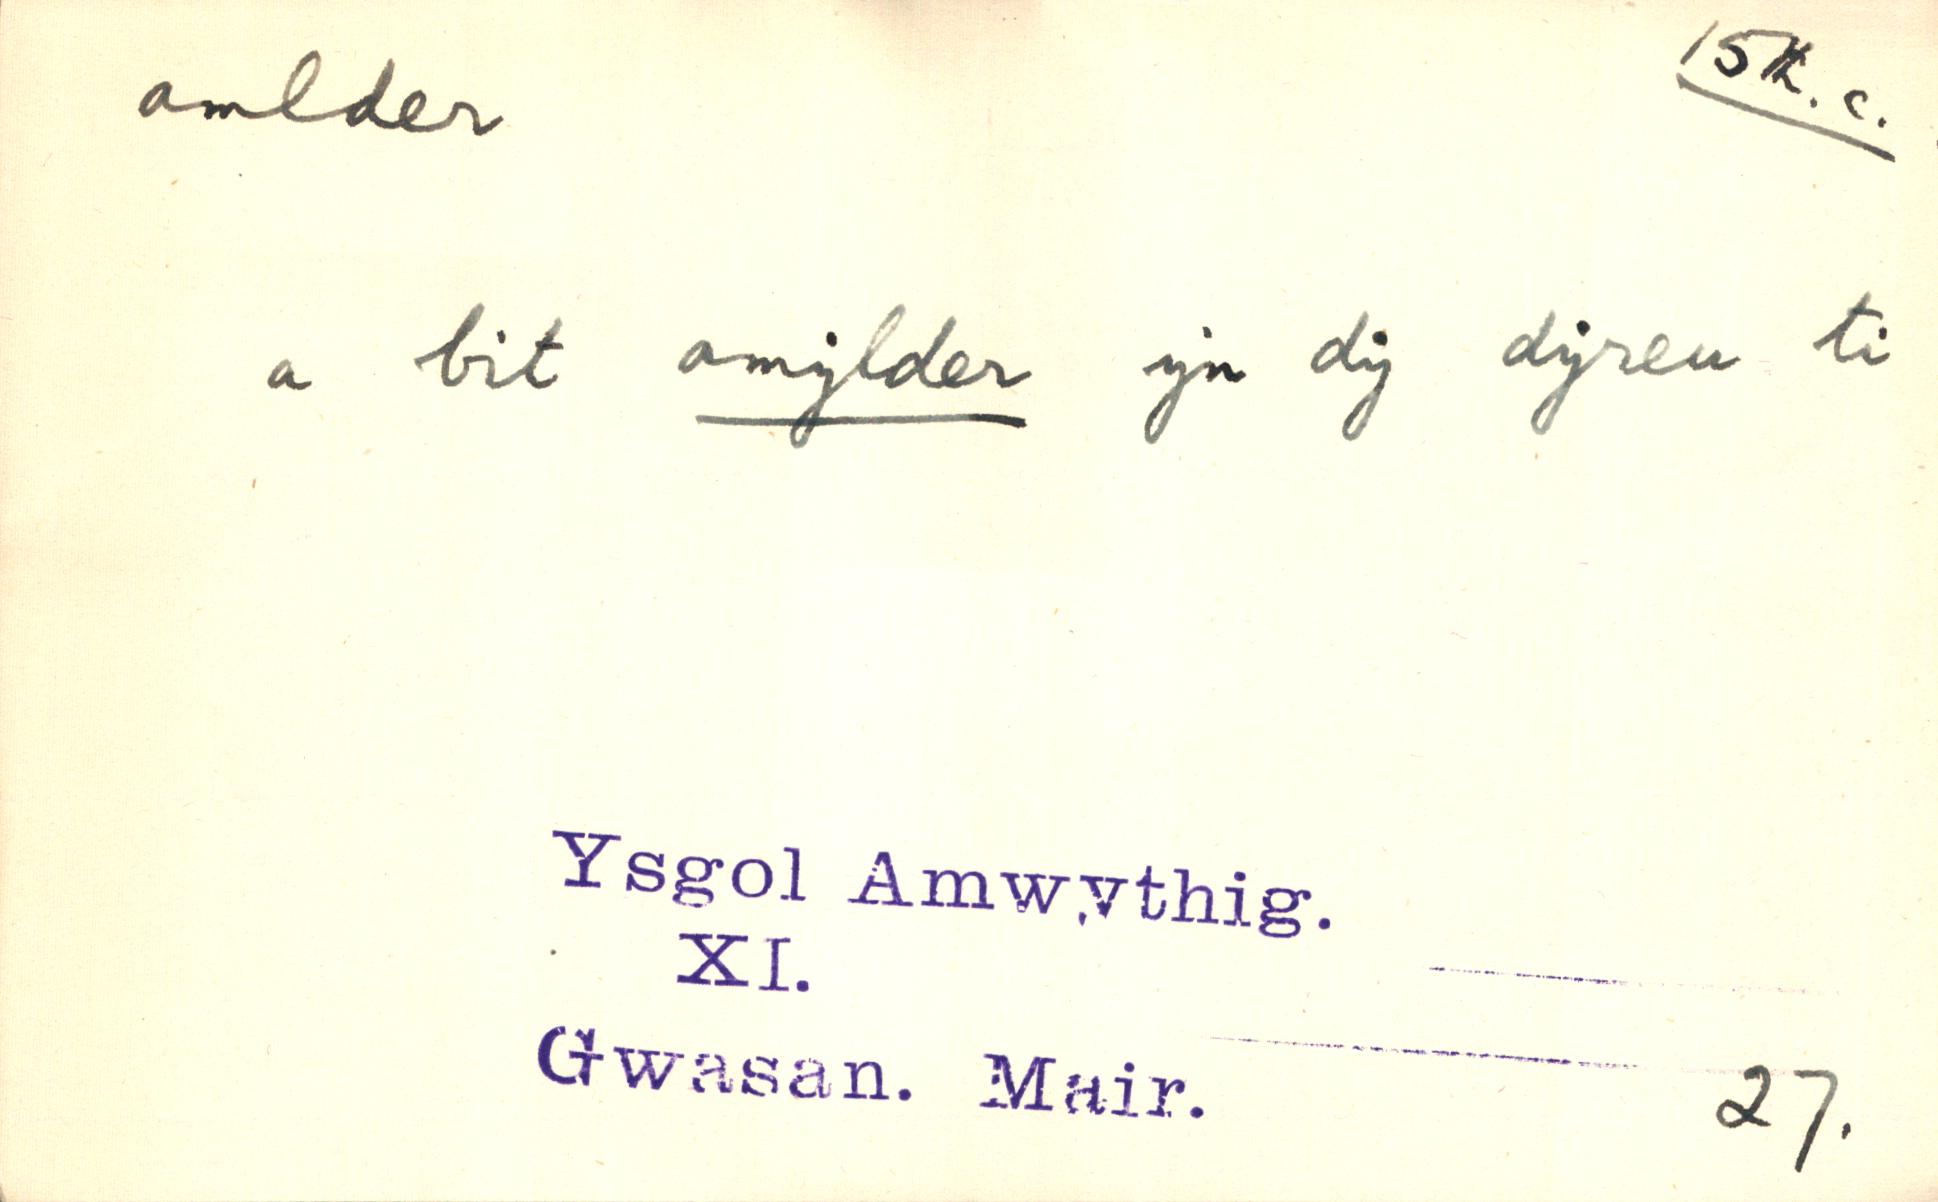 amlder
15th. c.
a bit amẏlder ẏn dẏ dẏreu ti
Ysgol Amwythig.
XI.
Gwasan. Mair.
27.